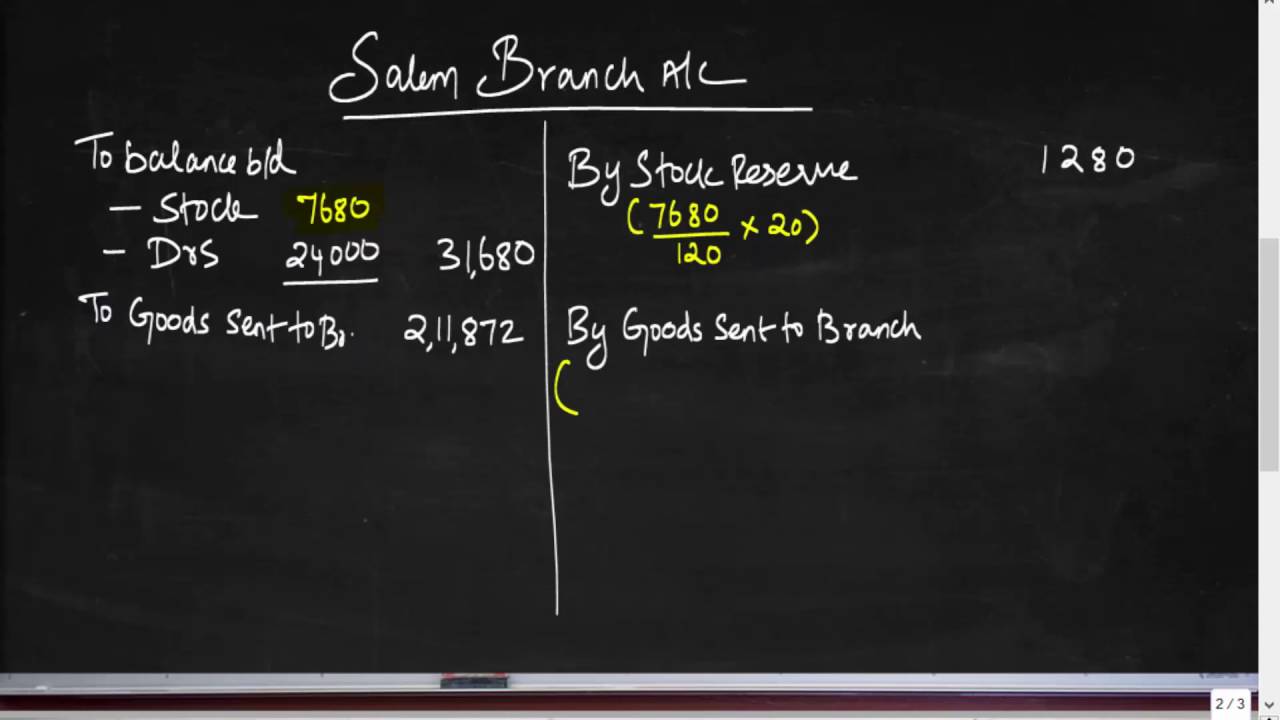 Salem Branch A/c
To balance b/d
– Stock 7680
– Drs 24000 31,680
To Goods Sent to Br. 2,11,872
By Stock Reserve 1280
(7680/120 × 20)
By Goods Sent to Branch
(
2 / 3